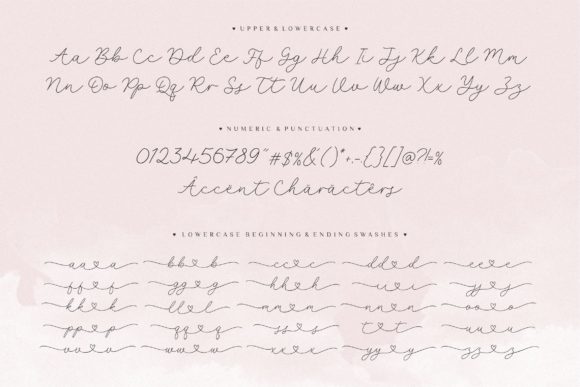 ♥ UPPER & LOWERCASE ♥
Aa Bb Cc Dd Ee Ff Gg Hh Ii Jj Kk Ll Mm
Nn Oo Pp Qq Rr Ss Tt Uu Vv Ww Xx Yy Zz
♥ NUMERIC & PUNCTUATION ♥
0123456789"#$%&'()*+,-{}[]@?!=%
Accent Characters
♥ LOWERCASE BEGINNING & ENDING SWASHES ♥
aa♥a bb♥b cc♥c dd♥d ee♥e
ff♥f gg♥g hh♥h ii♥i jj♥j
kk♥k ll♥l mm♥m nn♥n oo♥o
pp♥p qq♥q ss♥s tt♥t uu♥u
vv♥v ww♥w xx♥x yy♥y zz♥z